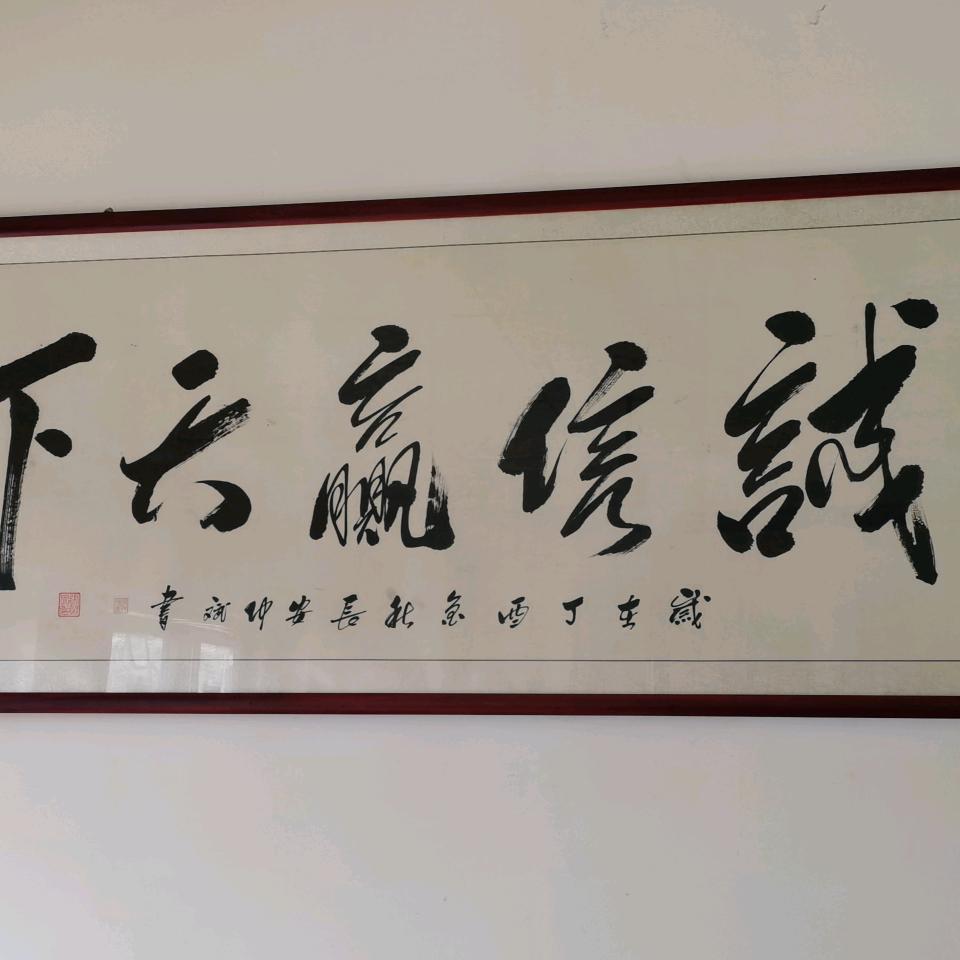 誠信贏天下
歲在丁酉金秋長安仲斌書